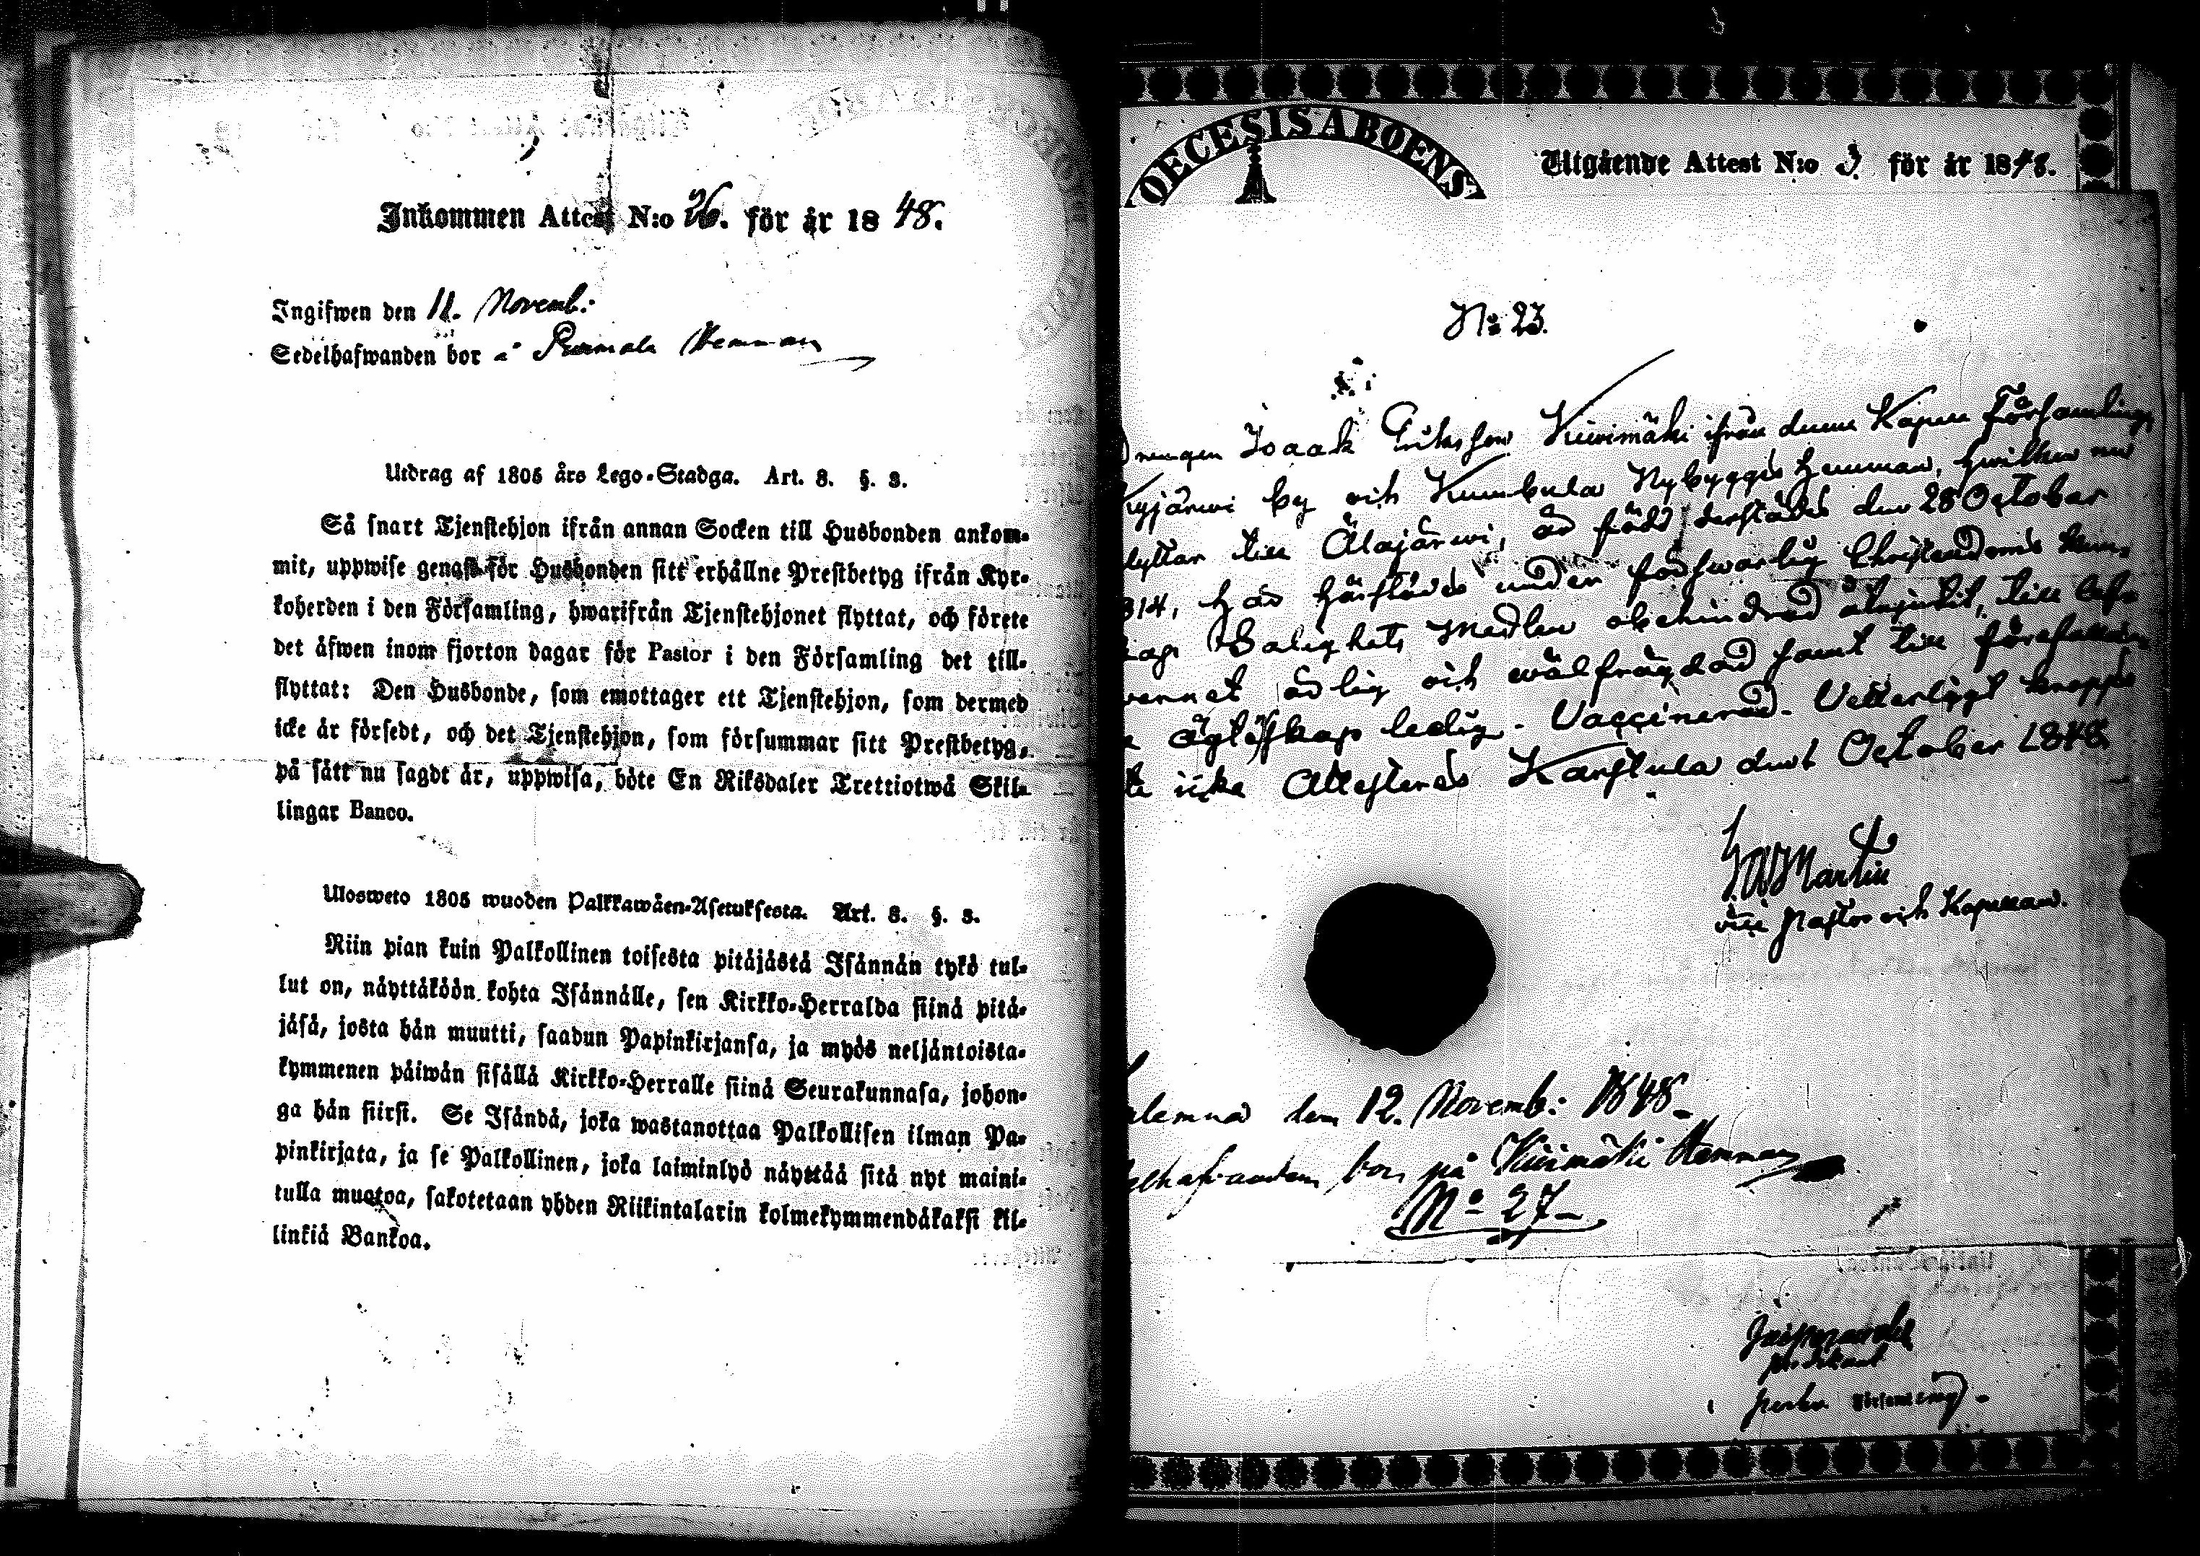 Inkommen Attest N:o 26. för år 1848.
Ingifwen den 11. Novemb:
Sedelhafwanden bor å Hemman
Utdrag af 1805 års Lego-Stadga. Art. 8. §. 3.
Så snart Tjenstehjon ifrån annan Socken till Husbonden ankom-
mit, uppwise genast för Husbonden sitt erhållne Prestbetyg ifrån Kyr-
koherden i den Församling, hwarifrån Tjenstehjonet flyttat, och förete
det äfwen inom fjorton dagar för Pastor i den Församling det till-
flyttat: Den Husbonde, som emottager ett Tjenstehjon, som dermed
icke är försedt, och det Tjenstehjon, som försummar sitt Prestbetyg,
på sätt nu sagdt är, uppwisa, böte En Riksdaler Trettiotwå Skil-
lingar Banco.
Ulosweto 1805 wuoden Palkkawäen-Asetuksesta. Art. 8. §. 3.
Niin pian kuin Palkollinen toisesta pitäjästä Isännän tykö tul-
lut on, näyttäköön kohta Isännälle, sen Kirkko-Herralda siinä pitä-
jäsä, josta hän muutti, saadun Papinkirjansa, ja myös neljäntoista-
kymmenen päiwän sisällä Kirkko-Herralle siinä Seurakunnasa, johon-
ga hän siirsi. Se Isändä, joka wastanottaa Palkollisen ilman Pa-
pinkirjata, ja se Palkollinen, joka laiminlyö näyttää sitä nyt maini-
tulla muotoa, sakotetaan yhden Riikintalarin kolmekymmendäkaksi kil-
linkiä Bankoa.
OECESIS ABOENS
Utgående Attest N:o 3 för år 1848.
No 23.
Drengen Isaak Eriksson Kiwimäki ifrån denne Kapell Församling
Kyjärwi by och Kumbula Nybygges hemman, hwilken nu
flyttar till Alajärwi, är född derstädes den 28 October
814, har härstädes under förswarlig Christendoms kun-
skap Salighets Medlen obehindrad åtnjutit, till
wernet ärlig och wälfrägdad samt till förefallan-
e ägteskap ledig. Vaccinerad. Vetterligt koppor
te icke Attesteras Karstula den October 1848
Martin
vice Pastor och Kapellan.
lemnad den 12. Novemb: 1848.
delhafwanden bor på Kiwimäki Hemman
No 27
Församling